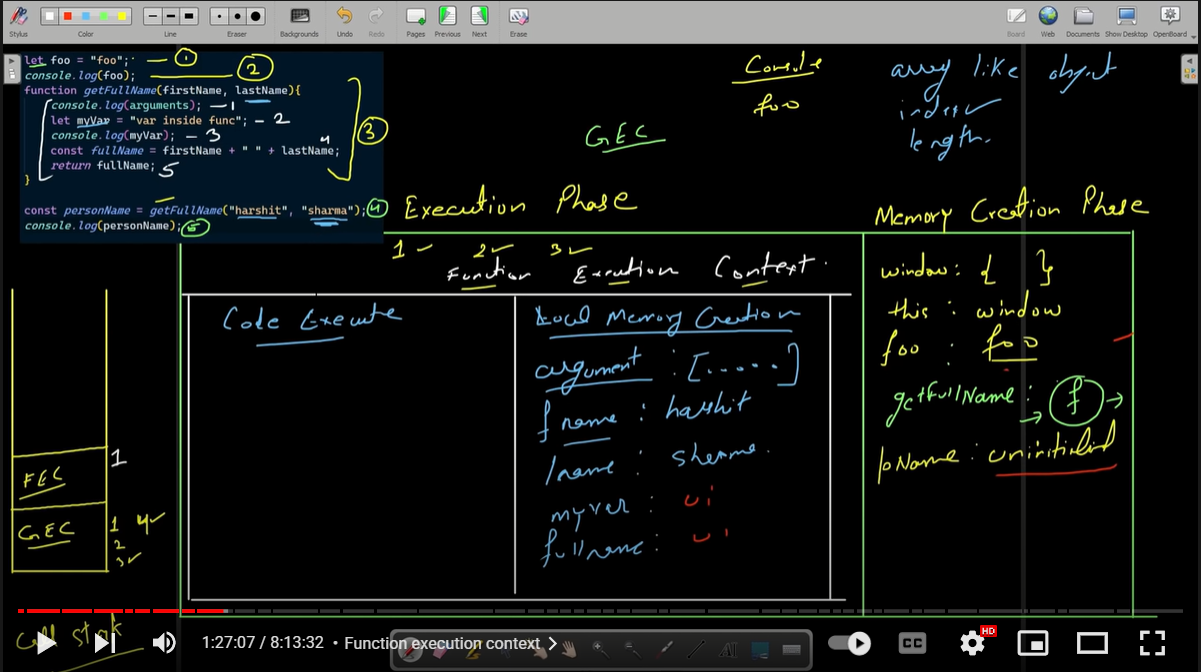 Stylus Color Line Eraser Backgrounds Undo Redo Pages Previous Next Erase Board Web Documents Show Desktop OpenBoard
let foo = "foo"; 1
console.log(foo); 2
function getFullName(firstName, lastName){
console.log(arguments); 1
let myVar = "var inside func"; 2
console.log(myVar); 3
const fullName = firstName + " " + lastName; 4
return fullName; 5
} 3
const personName = getFullName("harshit", "sharma"); 4
console.log(personName); 5
Console
foo
array like object
index
length.
GEC
Execution Phase
1 2 3
Function Execution Context.
Code Execute
Local Memory Creation
argument : [.....]
fname : harshit
lname :
myver : ui
fullname : ui
Memory Creation Phase
window : { }
this : window
foo : foo
getFullName : f
pName :
FEC 1
GEC 1 4
2
3
Call stack
1:27:07 / 8:13:32 • Function execution context
CC
HD